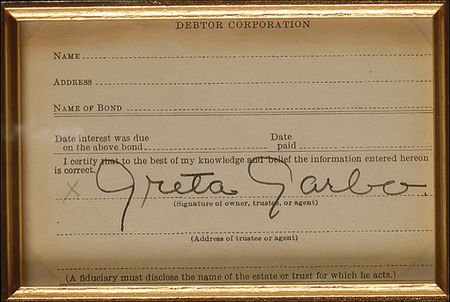 DEBTOR CORPORATION
NAME
ADDRESS
NAME OF BOND
Date interest was due Date
on the above bond paid
I certify that to the best of my knowledge and belief the information entered hereon
is correct.
X Greta Garbo.
(Signature of owner, trustee, or agent)
(Address of trustee or agent)
(A fiduciary must disclose the name of the estate or trust for which he acts.)